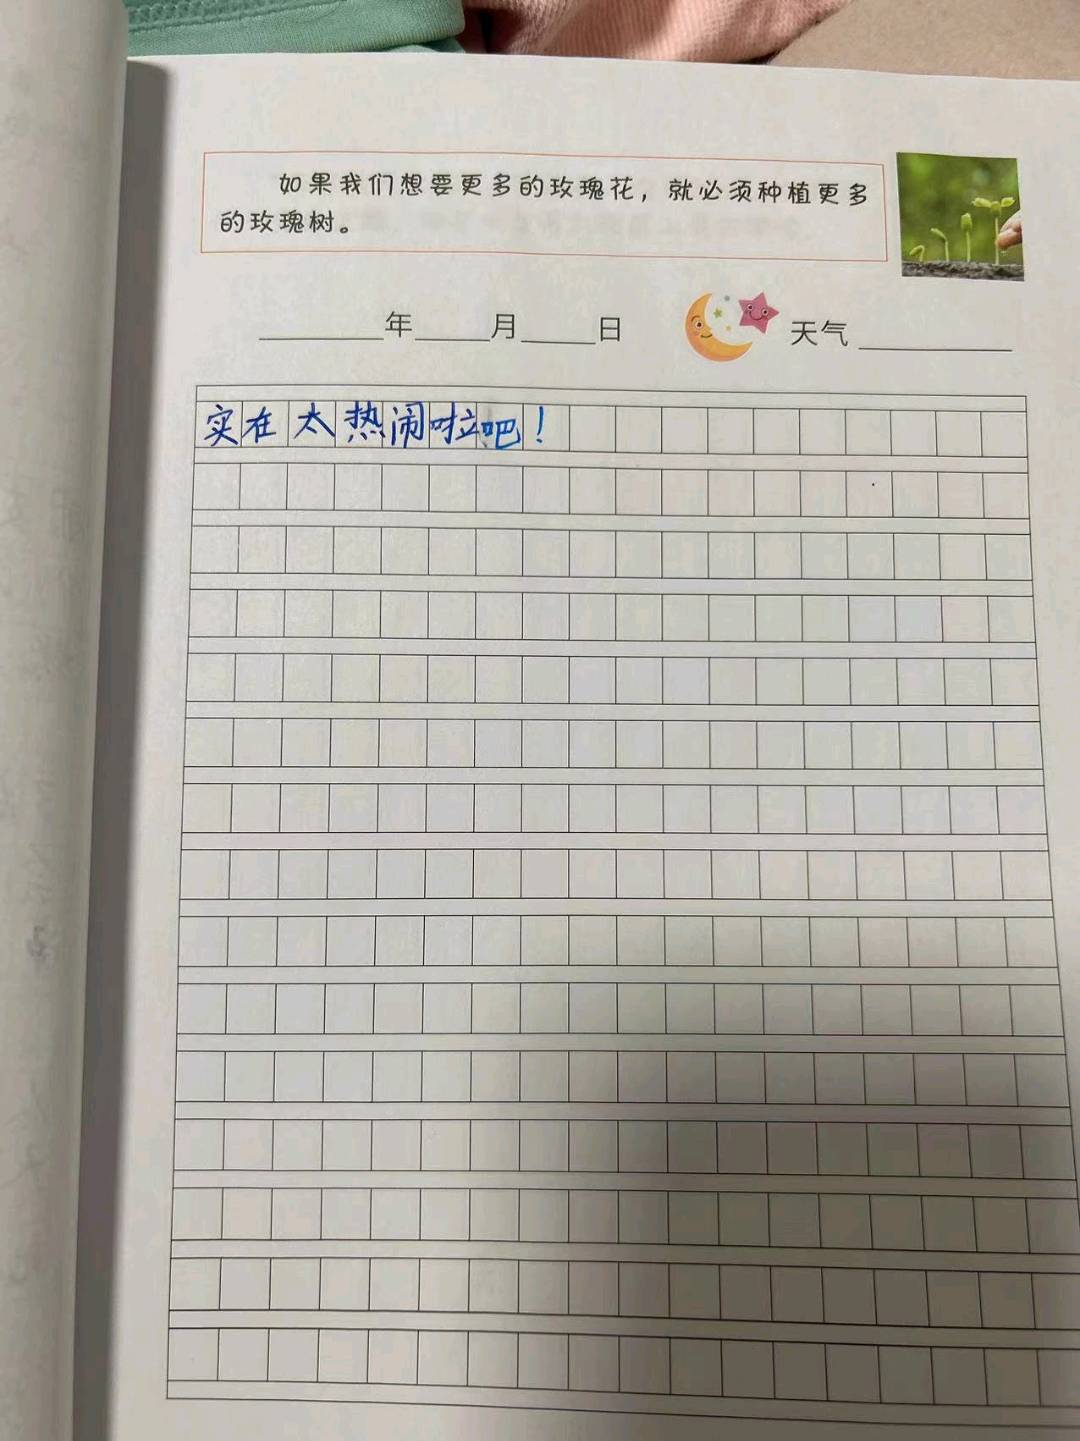 如果我们想要更多的玫瑰花，就必须种植更多
的玫瑰树。
年 月 日 天气
实在太热闹啦吧！